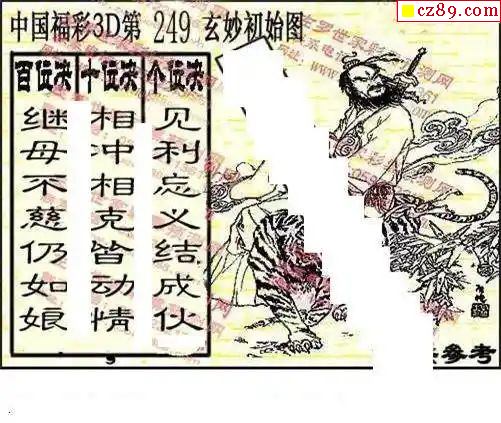 cz89.com
中国福彩3D第 249 玄妙初始图
百位决 十位决 个位决
继母不慈仍如娘
相冲相克皆动情
见利忘义结成伙
参考